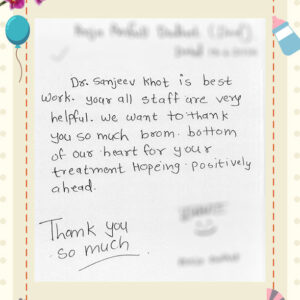 Dr. Sanjeev Khot is best
work. your all staff are very
helpful. we want to thank
you so much brom. bottom
of our heart for your
treatment Hopeing. positively
ahead.
Thank you
so much